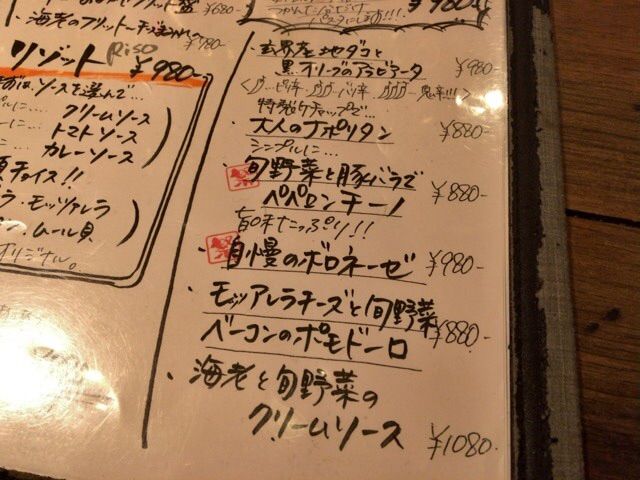 ¥680-
海老のフリット
¥780-
リゾット Riso
¥980-
ソースを選んで...
クリームソース
トマトソース
カレーソース
チョイス!!
モッツァレラ
ムール貝
オリジナル。
¥980-
玄界産地ダコと
黒オリーブのアラビアータ ¥980-
特製ケチャップで...
大人のナポリタン ¥880-
シンプルに...
旬野菜と豚バラで
ペペロンチーノ ¥880-
旨味たっぷり!!
自慢のボロネーゼ ¥980-
モッツァレラチーズと旬野菜
ベーコンのポモドーロ ¥880-
海老と旬野菜の
クリームソース ¥1080-